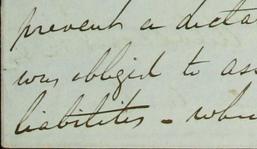 prevent a dicta
was obligid to as
liabilities - whe